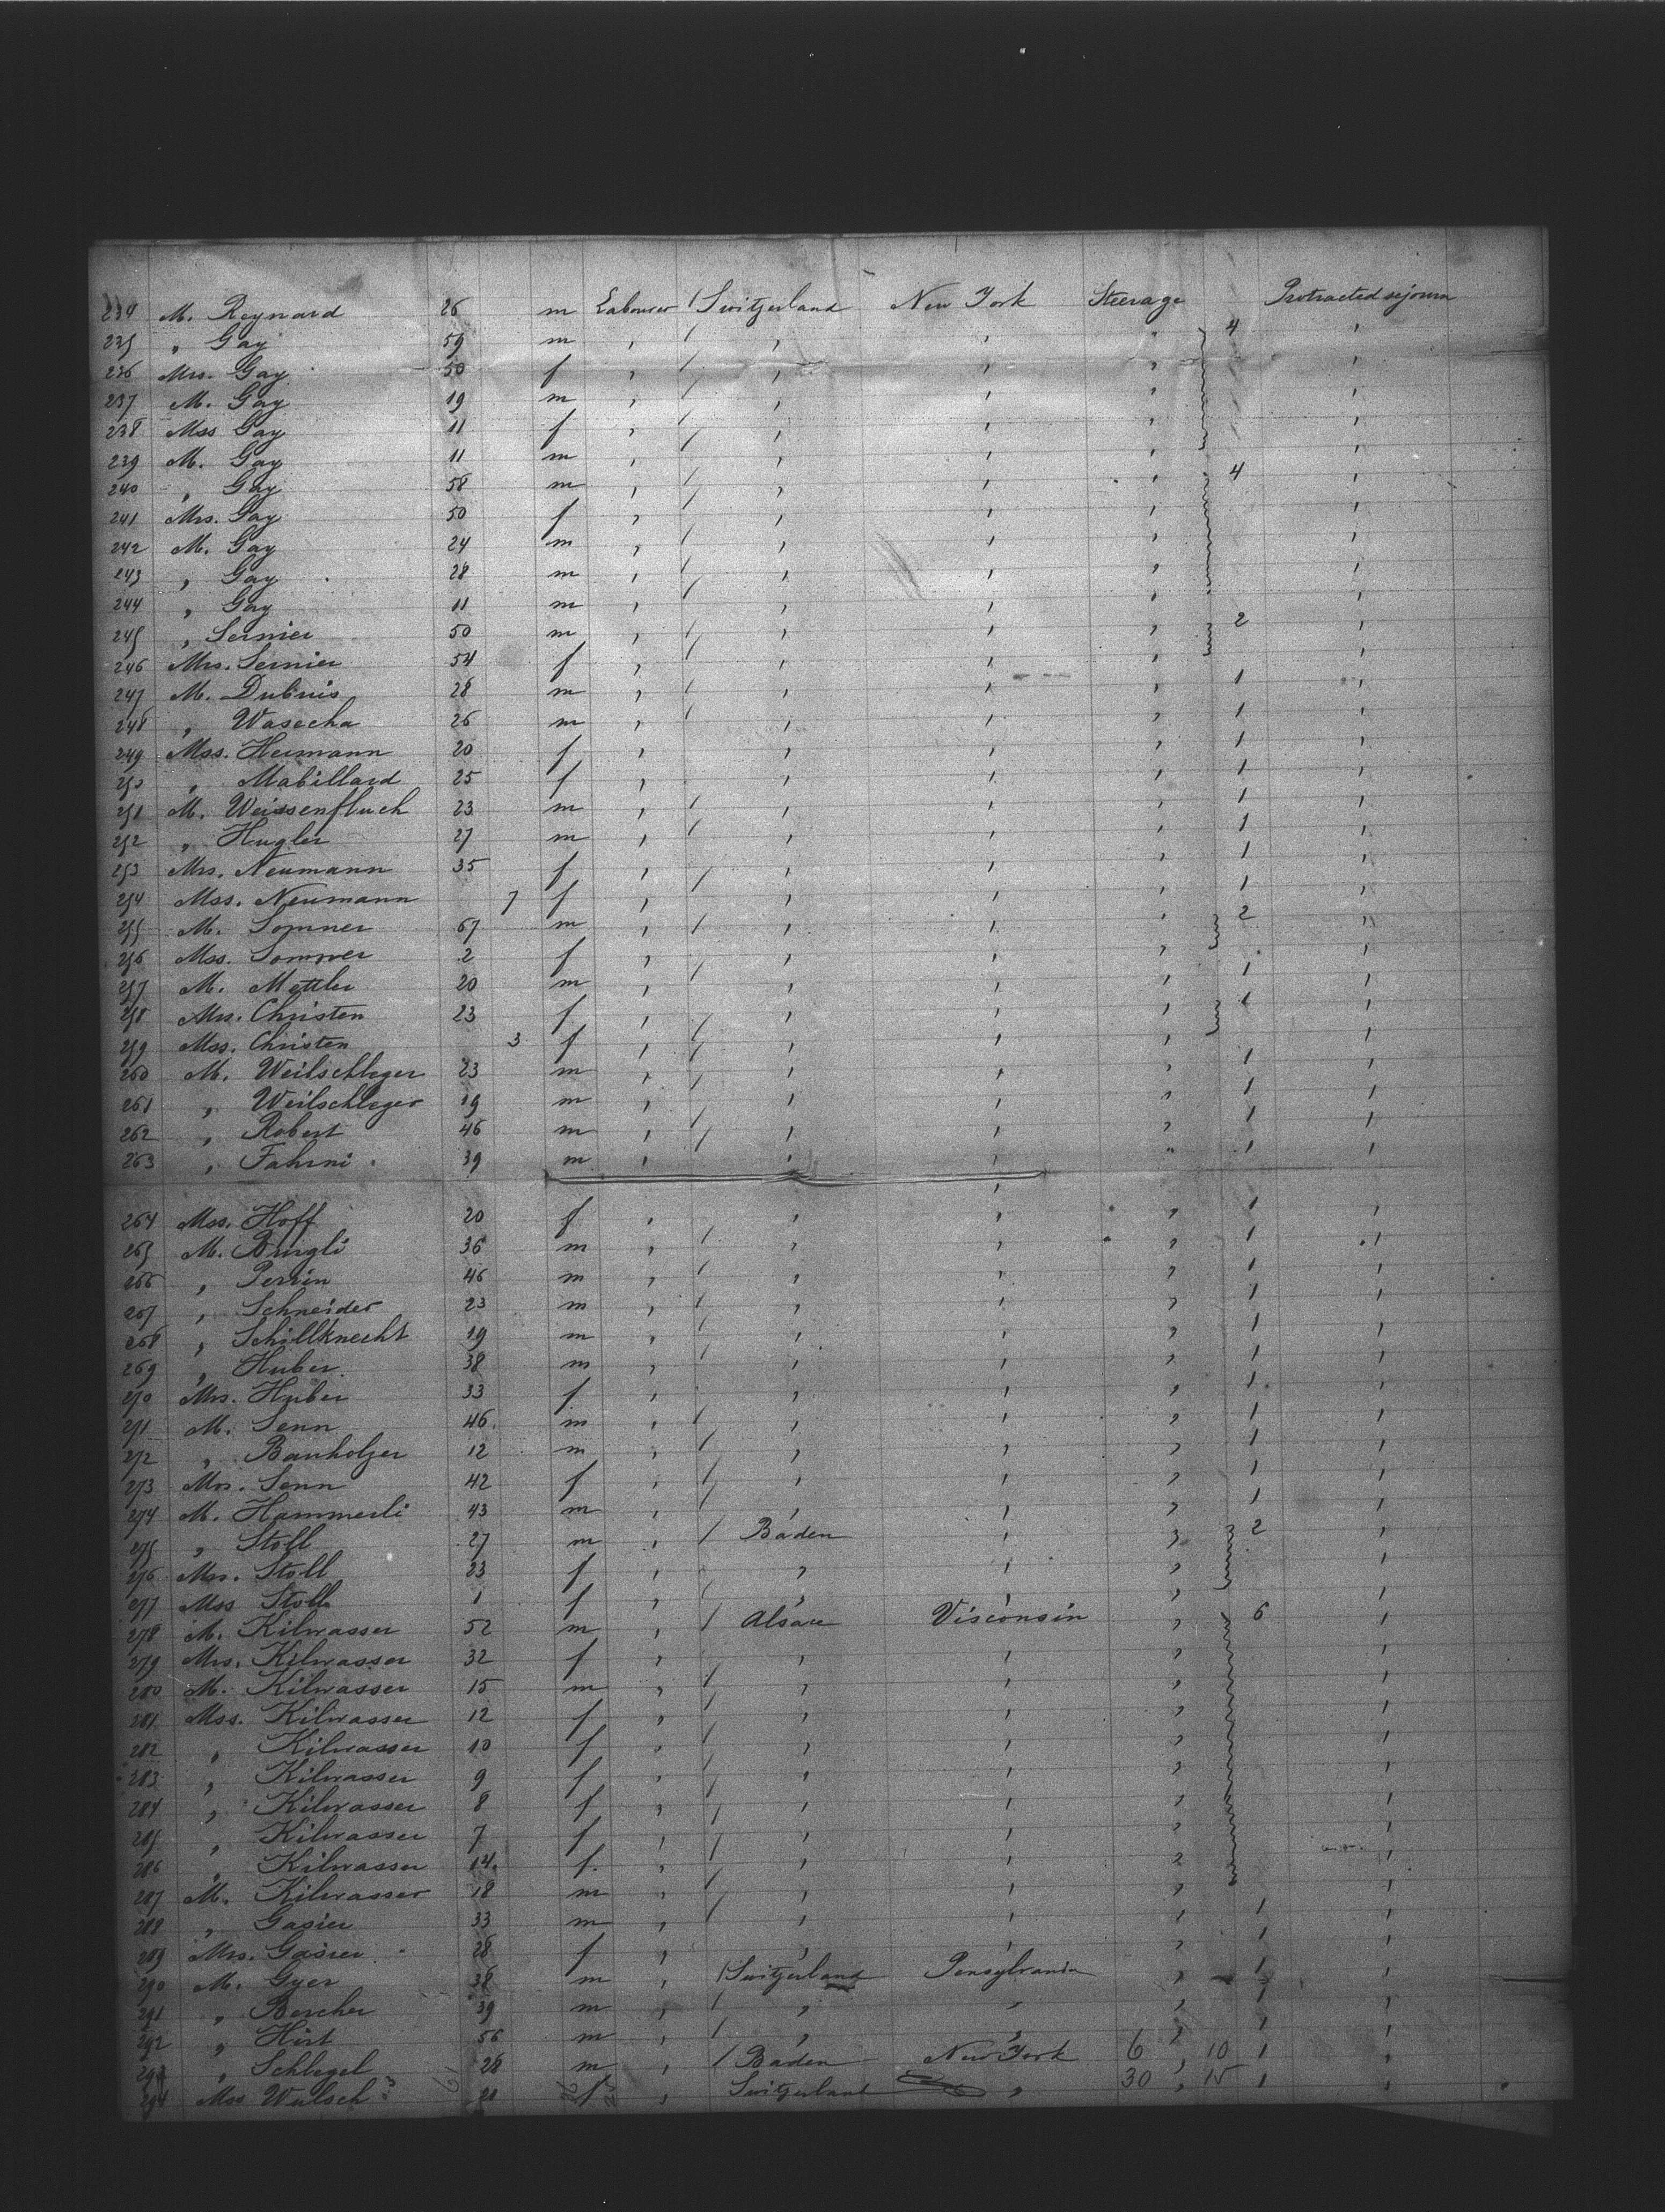 234 M. Reynard 26 m Labourer / Switzerland New York Steerage Protracted sejourn
235 " Gay 59 m , / , , , 4 ,
236 Mrs. Gay 50 f , / , , , ,
237 M. Gay 19 m , / , , , ,
238 Mss Gay 11 f , , , , ,
239 M. Gay 11 m , / , , , ,
240 , Gay 58 m , / , , , 4 ,
241 Mrs. Gay 50 f , / , , , ,
242 M. Gay 24 m , / , , , ,
243 , Gay 28 m , / , , , ,
244 , Gay 11 m , / , , , ,
245 , Sernier 50 m , / , , , 2 ,
246 Mrs. Sernier 54 f , / , , , ,
247 M. Dubuis 28 m , / , , , 1 ,
248 , Wasecha 26 m , / , , , 1 ,
249 Mss. Heimann 20 f , , , , 1 ,
250 , Mabillard 25 f , , , , 1 ,
251 M. Weissenfluch 23 m , / , , , 1 ,
252 , Hugler 27 m , / , , , 1 ,
253 Mrs. Neumann 35 f , , , , 1 ,
254 Mss. Neumann 7 f , / , , , 1 ,
255 M. Sommer 67 m , / , , , 2 ,
256 Mss. Sommer 2 f , , , , ,
257 M. Mettler 20 m , / , , , 1 ,
258 Mrs. Christen 23 f , , , , 1 ,
259 Mss. Christen 3 f , / , , , ,
260 M. Weilschleger 23 m , / , , , 1 ,
261 , Weilschleger 19 m , / , , , 1 ,
262 , Robert 46 m , / , , , 1 ,
263 , Fahrni 39 m , / , , " 1 ,
264 Mss. Hoff 20 f , , , , 1 ,
265 M. Burgli 36 m , / , , , 1 ,
266 , Perrin 46 m , / , , , 1 ,
267 , Schneider 23 m , / , , , 1 ,
268 , Schillknecht 19 m , / , , , 1 ,
269 , Huber 38 m , / , , , 1 ,
270 Mrs. Huber 33 f , , , , 1 ,
271 M. Senn 46 m , / , , , 1 ,
272 , Banholzer 12 m , / , , , 1 ,
273 Mrs. Senn 42 f , / , , , 1 ,
274 M. Hammerli 43 m , / , , , 1 ,
275 , Stoll 27 m , / Baden , , 2 ,
276 Mrs. Stoll 23 f , , , , ,
277 Mss Stoll 1 f , / , , , ,
278 M. Kilwasser 52 m , / Alsace Visconsin , 6 ,
279 Mrs. Kilwasser 32 f , , , , ,
280 M. Kilwasser 15 m , / , , , ,
281 Mss. Kilwasser 12 f , / , , , ,
282 , Kilwasser 10 f , / , , , ,
283 , Kilwasser 9 f , / , , , ,
284 , Kilwasser 8 f , / , , , ,
285 , Kilwasser 7 f , / , , , ,
286 , Kilwasser 14 f. , / , , , ,
287 M. Kilwasser 18 m , / , , , ,
288 , Gasier 33 m , / , , , 1 ,
289 Mrs. Gasier 28 f , , , , 1 ,
290 M. Gyer 38 m , / Switzerland Pensylvania , 1 ,
291 , Borcher 39 m , / , , , 1 ,
292 , Hirt 56 m , / , , , 1 ,
293 , Schlegel 28 m , / Baden New York 6 , 10 1 ,
294 Mss Wulsch 20 f , Switzerland , 30 , 15 1 ,